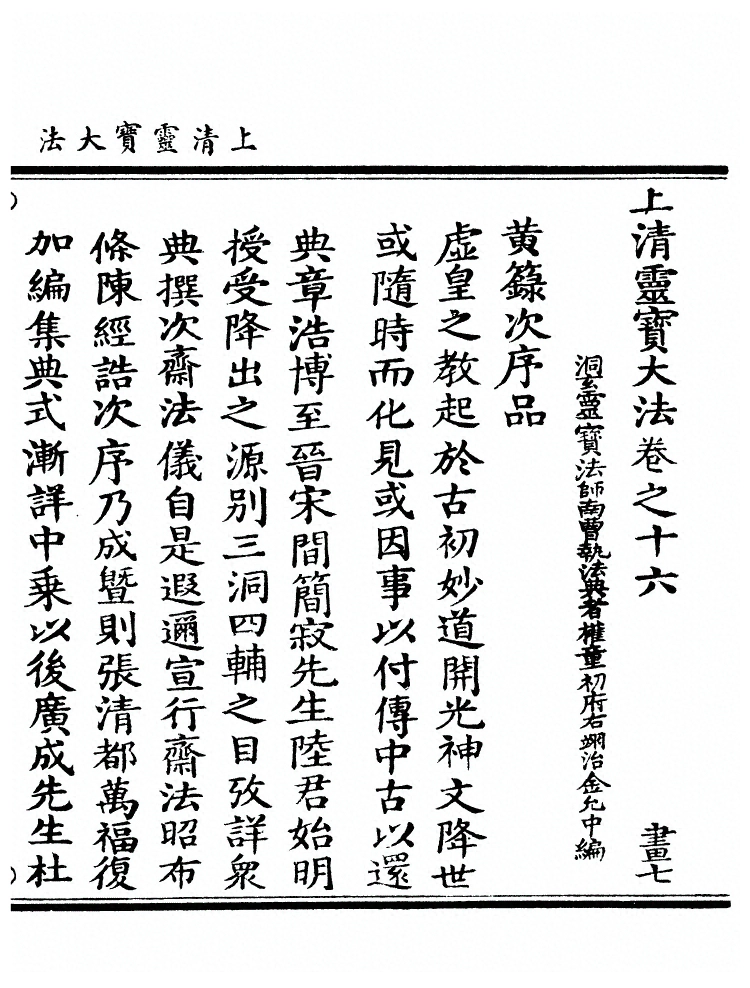 上清靈寶大法
上清靈寶大法卷之十六 畫七
洞玄靈寶法師南曹執法典者權童初府右翊治金允中編
黃籙次序品
虛皇之教起於古初妙道開光神文降世
或隨時而化見或因事以付傳中古以還
典章浩博至晉宋間簡寂先生陸君始明
授受降出之源別三洞四輔之目攷詳衆
典撰次齋法儀自是遐邇宣行齋法昭布
條陳經誥次序乃成暨則張清都萬福復
加編集典式漸詳中乘以後廣成先生杜